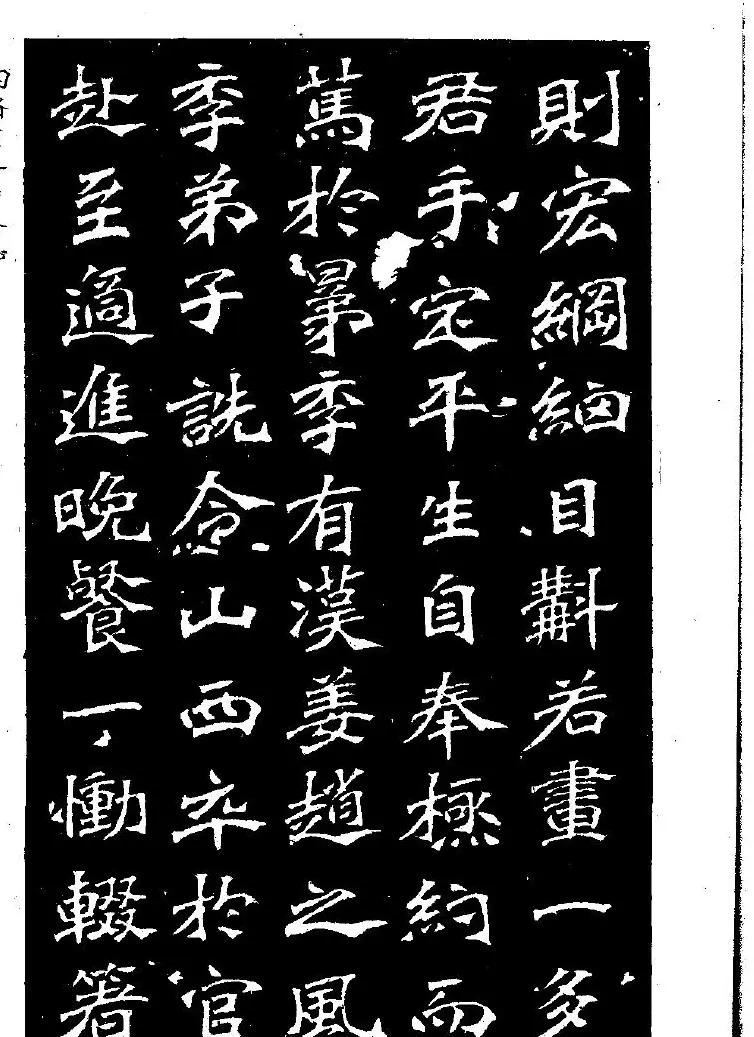 則宏綱細目斠若畫一多
君手定平生自奉極約而
篤於㬪季有漢姜趙之風
季弟子詵令山西卒於官
赴至適進晚餐一慟輟箸